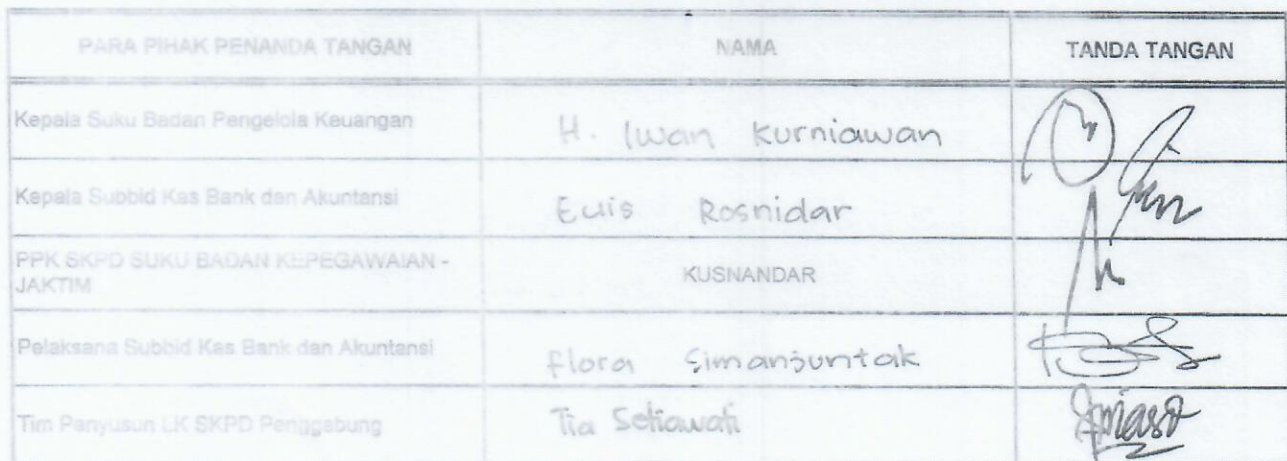 PARA PIHAK PENANDA TANGAN NAMA TANDA TANGAN
Kepala Suku Badan Pengelola Keuangan H. Iwan Kurniawan
Kepala Subbid Kas Bank dan Akuntansi Euis Rosnidar
PPK SKPD SUKU BADAN KEPEGAWAIAN -
JAKTIM KUSNANDAR
Pelaksana Subbid Kas Bank dan Akuntansi Flora Simanjuntak
Tim Penyusun LK SKPD Penggabung Tia Setiawati